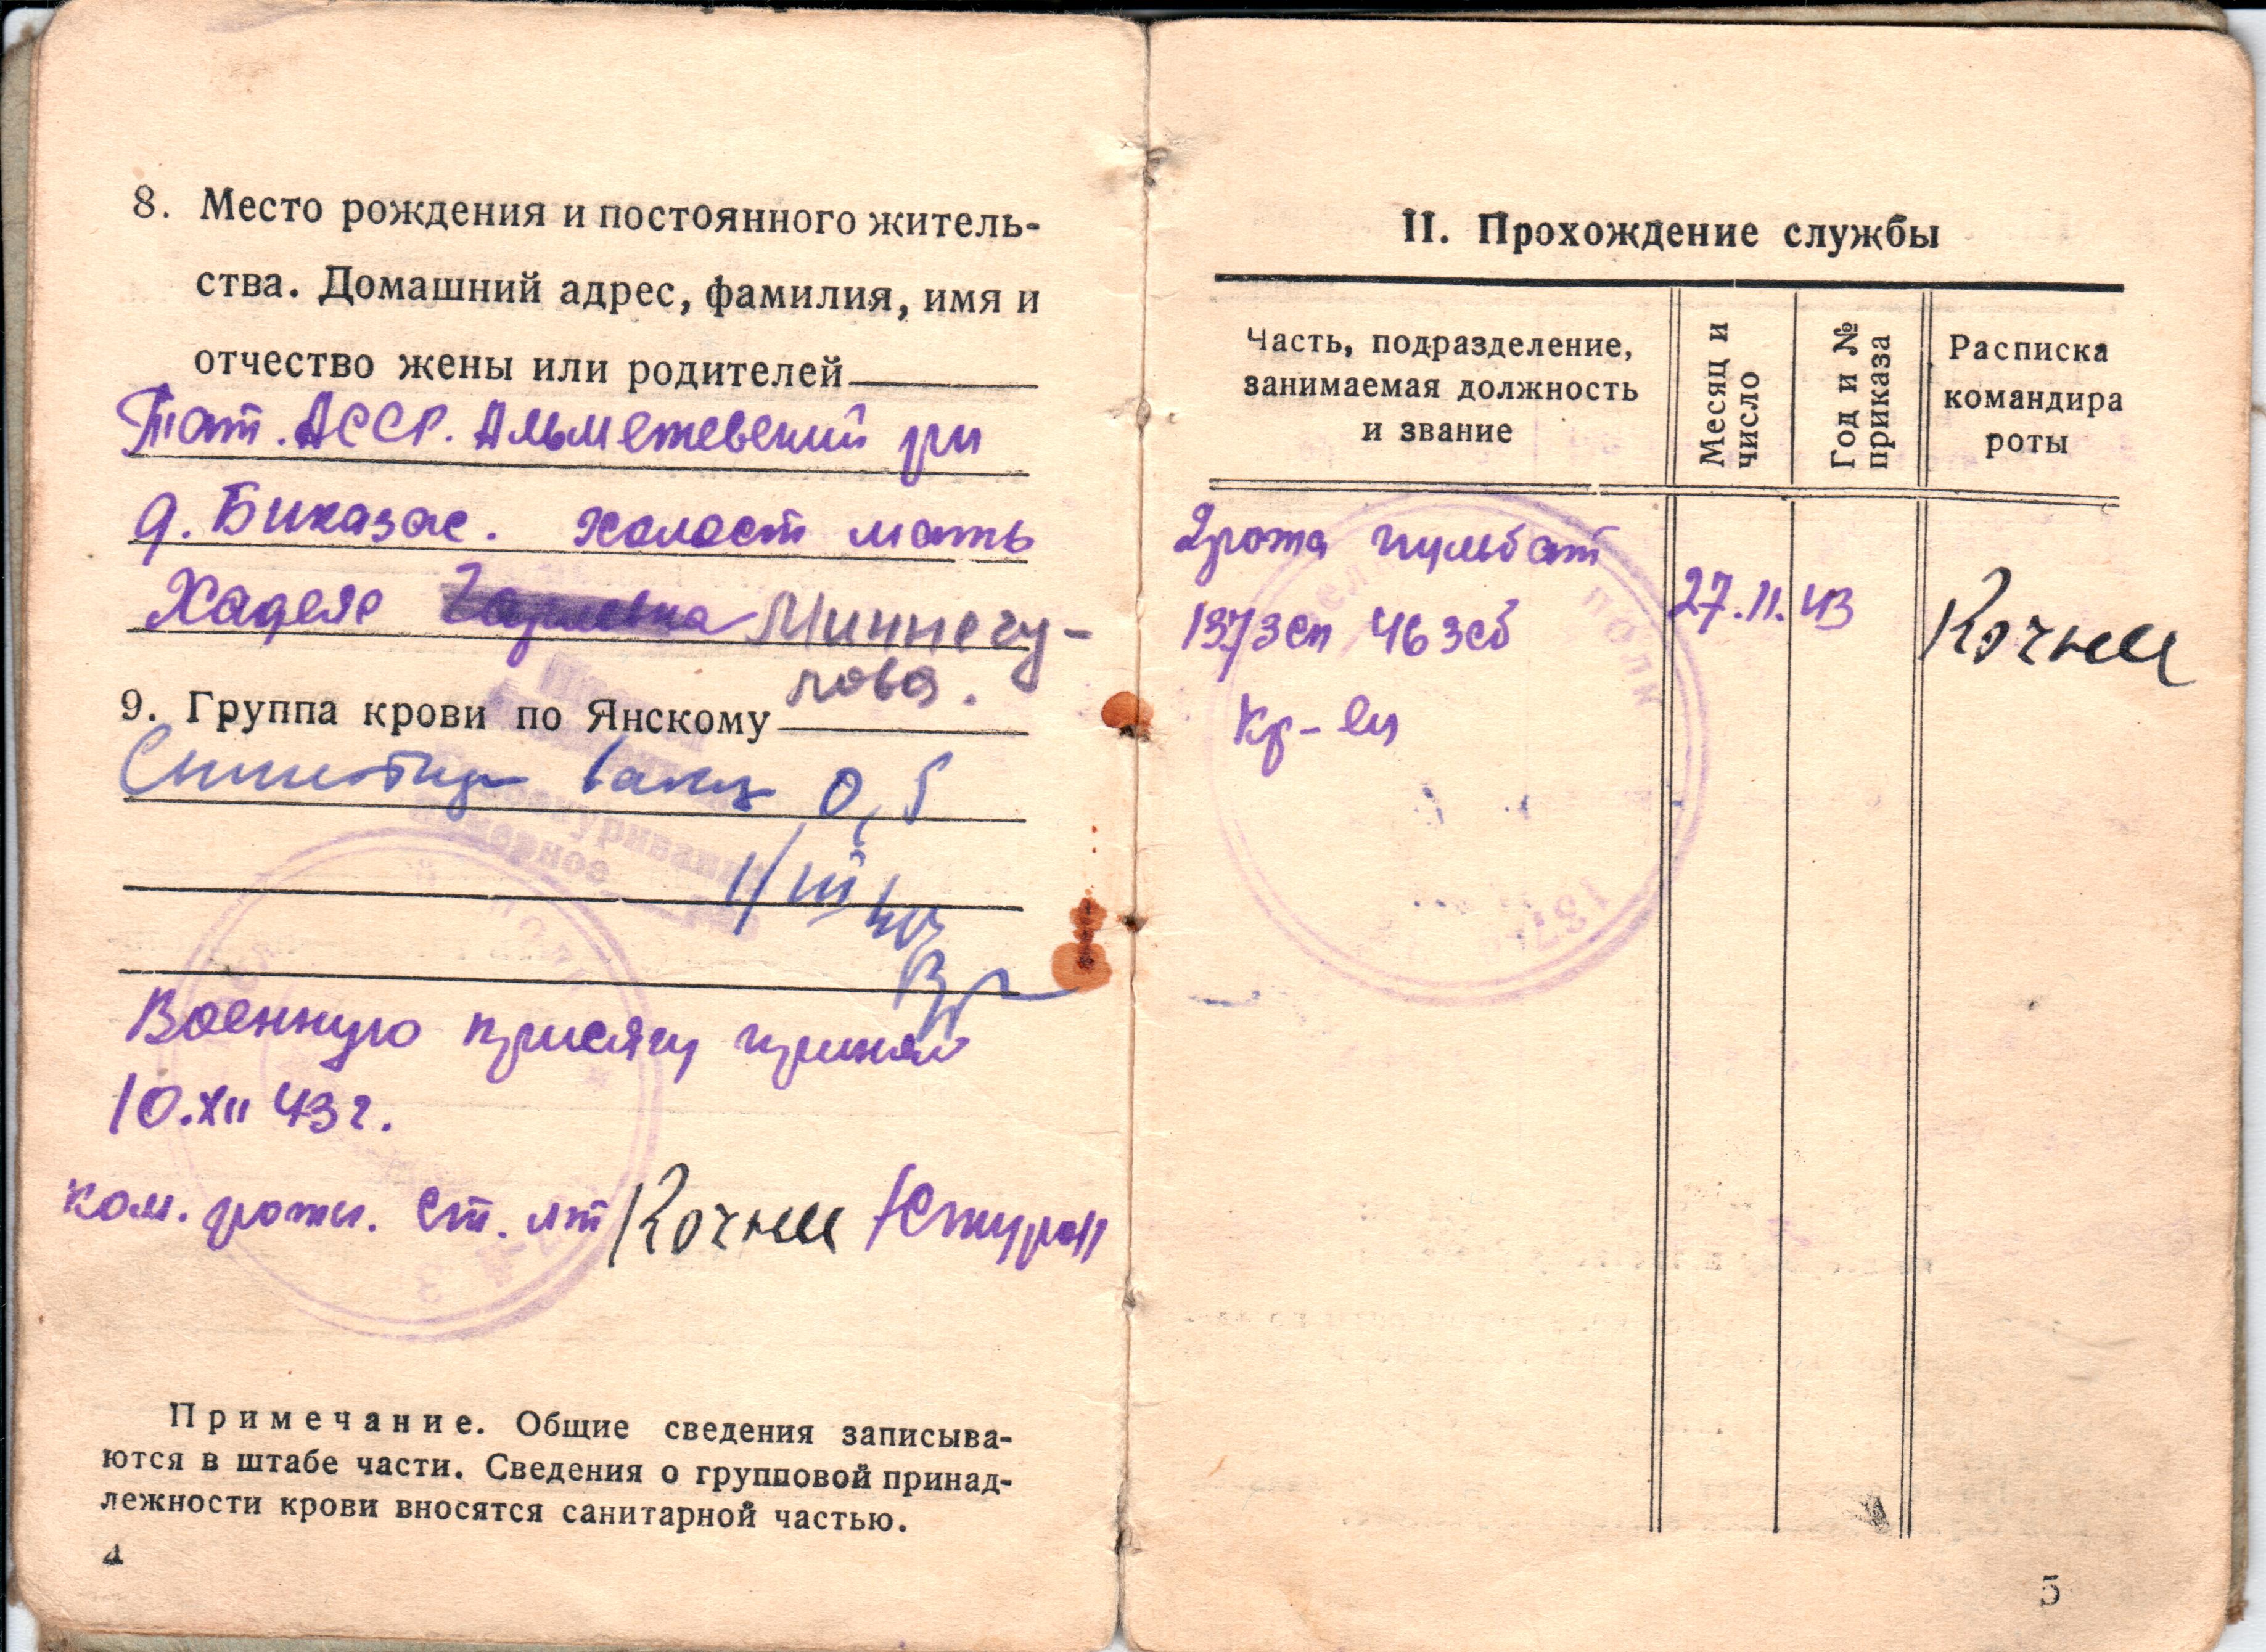 8. Место рождения и постоянного житель-
ства. Домашний адрес, фамилия, имя и
отчество жены или родителей
Тат. АССР. Альметевский рн
д. Биказас. холост мать
Хадеяе Миннегу-
лова.
9. Группа крови по Янскому
0,5
1/III 44
Военную присягу принял
10.XII 43 г.
ком. роты. ст. лт Кочнев
Примечание. Общие сведения записыва-
ются в штабе части. Сведения о групповой принад-
лежности крови вносятся санитарной частью.
4
II. Прохождение службы
Часть, подразделение,
занимаемая должность
и звание
Месяц и
число
Год и №
приказа
Расписка
командира
роты
2рота пульбат
1373сп 46зсб
27.11.43
Кочнев
кр-ец
полк
137
5